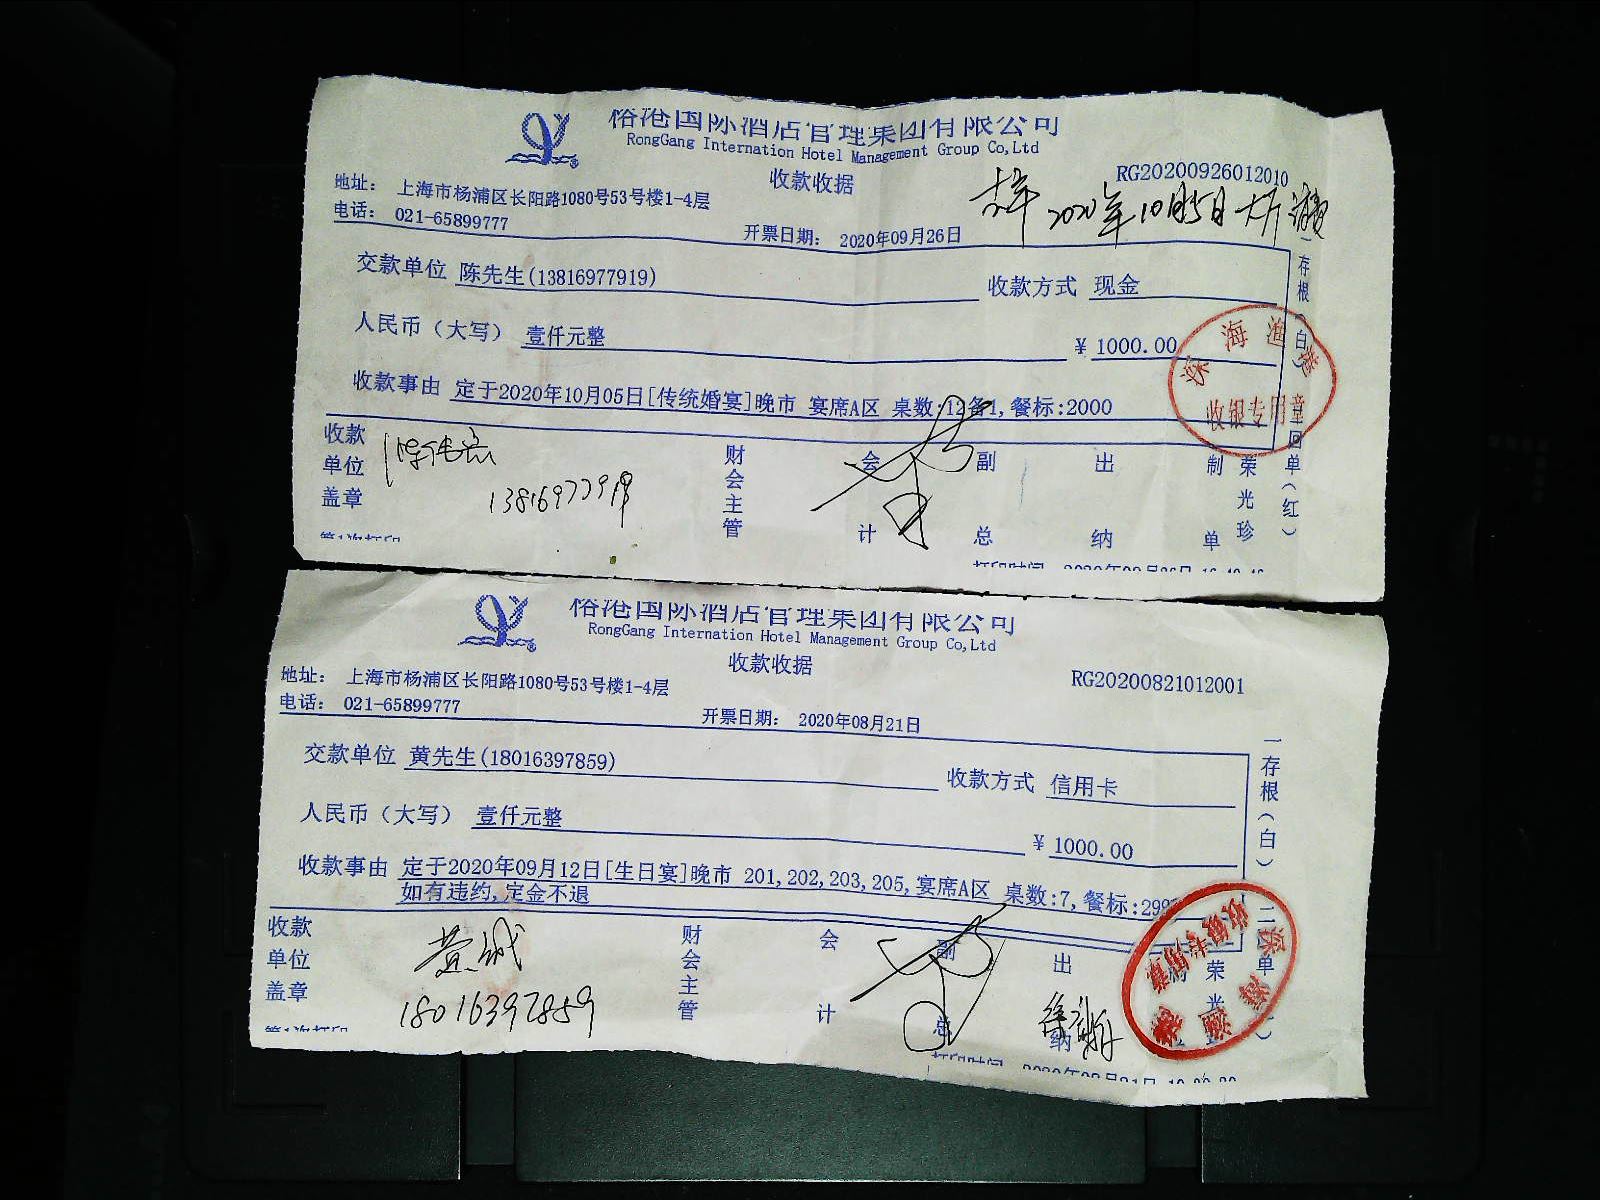 榕港国际酒店管理集团有限公司
RongGang Internation Hotel Management Group Co,Ltd
收款收据
RG20200926012010
地址： 上海市杨浦区长阳路1080号53号楼1-4层
2020年10月5日
电话： 021-65899777
开票日期： 2020年09月26日
交款单位 陈先生(13816977919)
收款方式 现金
人民币（大写） 壹仟元整
¥ 1000.00
收款事由 定于2020年10月05日[传统婚宴]晚市 宴席A区 桌数:12备1,餐标:2000
一存根（白）
二回单（红）
深海渔港
收银专用章
收款单位盖章
13816977919
财会主管
会计
副总
出纳
制单
荣光珍
第1次打印
打印时间
榕港国际酒店管理集团有限公司
RongGang Internation Hotel Management Group Co,Ltd
收款收据
RG20200821012001
地址： 上海市杨浦区长阳路1080号53号楼1-4层
电话： 021-65899777
开票日期： 2020年08月21日
交款单位 黄先生(18016397859)
收款方式 信用卡
人民币（大写） 壹仟元整
¥ 1000.00
收款事由 定于2020年09月12日[生日宴]晚市 201,202,203,205,宴席A区 桌数:7,餐标:299
如有违约,定金不退
一存根（白）
深海渔港
收银专用章
收款单位盖章
黄诚
18016397859
财会主管
会计
副总
出纳
荣光
第1次打印
打印时间